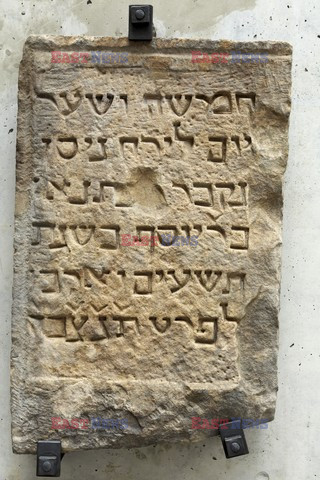 חמישה ושער
יום לירח ניסן
נקבר תנא
בר יוסף בשנת
תשעים וארבע
לפרט